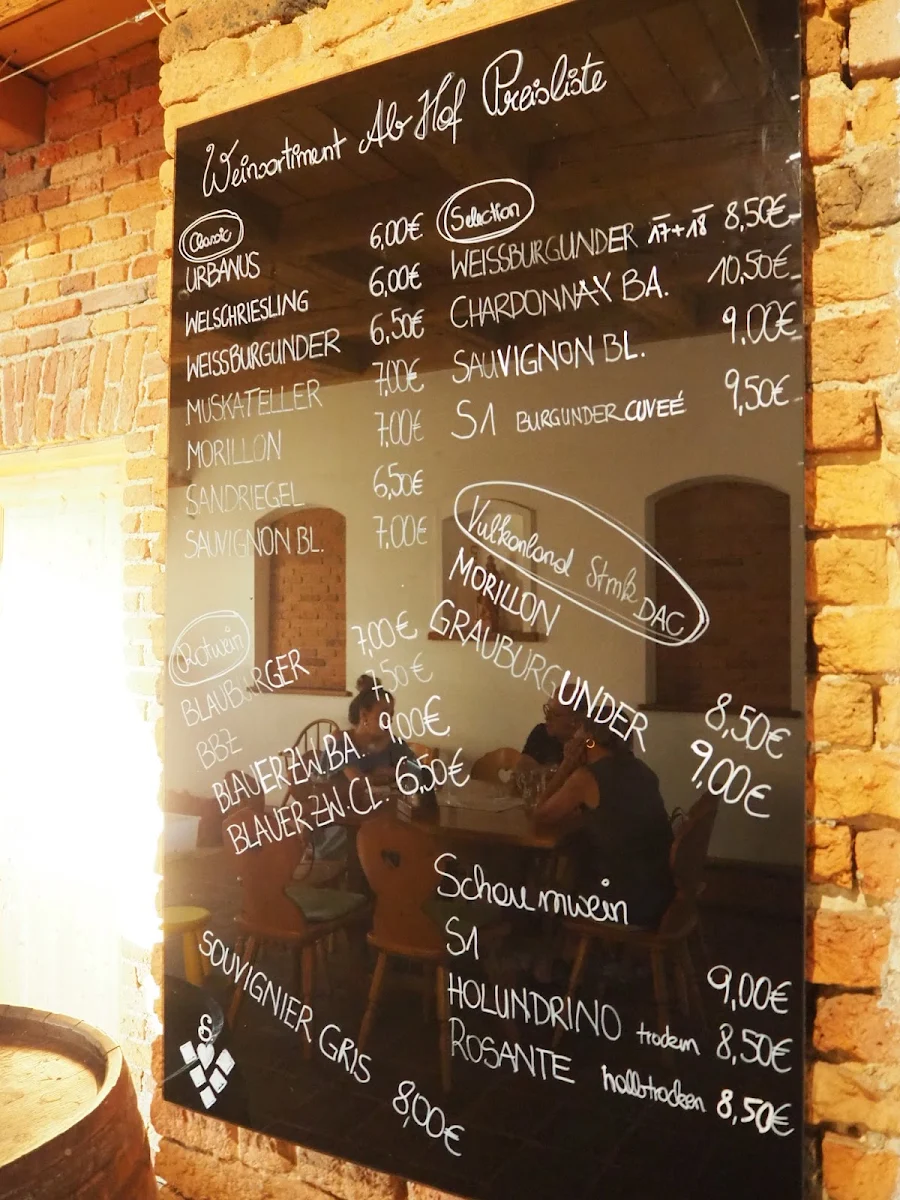 Weinsortiment Ab Hof Preisliste
Classic
URBANUS 6,00€
WELSCHRIESLING 6,00€
WEISSBURGUNDER 6,50€
MUSKATELLER 7,00€
MORILLON 7,00€
SANDRIEGEL 6,50€
SAUVIGNON BL. 7,00€
Rotwein
BLAUBURGER 7,00€
BBZ 7,50€
BLAUER ZW. BA. 9,00€
BLAUER ZW. CL. 6,50€
SOUVIGNIER GRIS 8,00€
Selection
WEISSBURGUNDER 17+18 8,50€
CHARDONNAY BA. 10,50€
SAUVIGNON BL. 9,00€
S1 BURGUNDER CUVEÉ 9,50€
Vulkanland Stmk DAC
MORILLON 8,50€
GRAUBURGUNDER 9,00€
Schaumwein
S1 9,00€
HOLUNDRINO trocken 8,50€
ROSANTE halbtrocken 8,50€